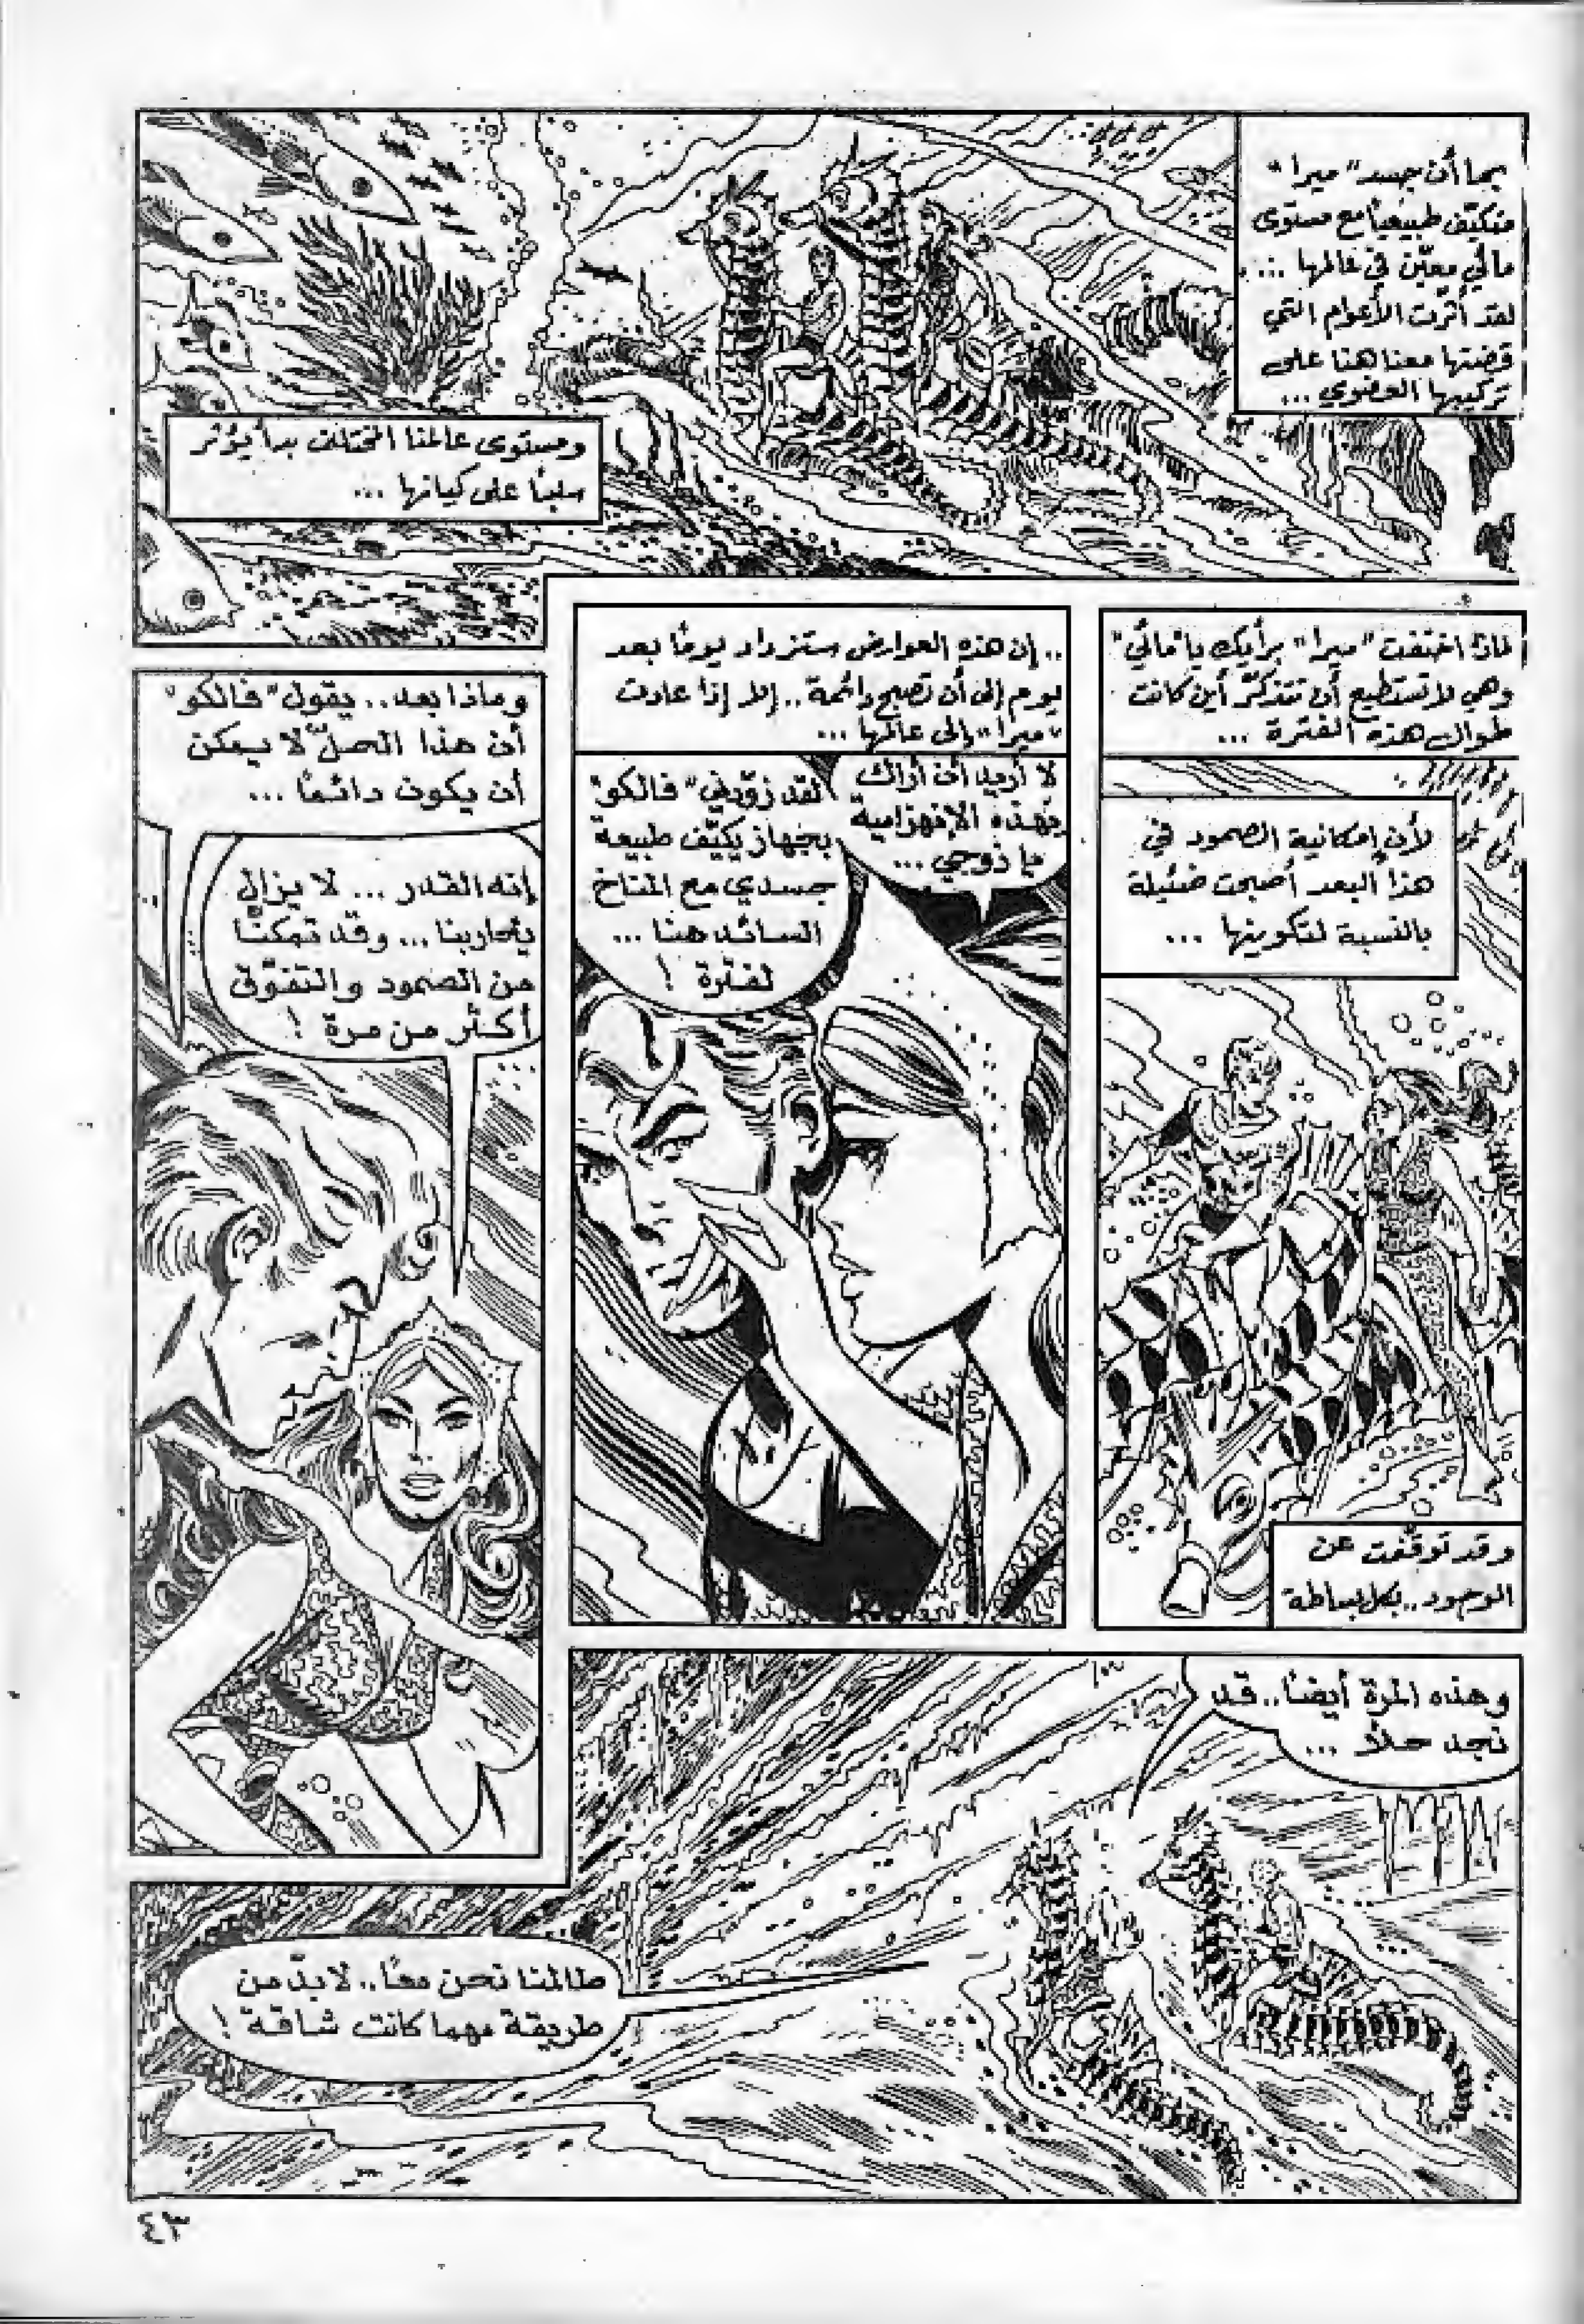 بما أن جسد "ميرا"
متكيّف طبيعياً مع مستوى
مائي معيّن في عالمها ...
لقد أثّرت الأعوام التي
قضتها معنا هنا على
تركيبها العضوي ...
ومستوى عالمنا المختلف بدأ يؤثر
سلباً على كيانها ...
لماذا اختفت "ميرا" برأيك يا "مائي"
وهي لا تستطيع أن تتذكّر أين كانت
طوال هذه الفترة ...
لأن إمكانية الصمود في
هذا البعد أصبحت ضئيلة
بالنسبة لتكوينها ...
وقد توقّفت عن
الوجود.. بكل بساطة
.. إن هذه العوارض ستزداد يوماً بعد
يوم إلى أن تصبح دائمة .. إلا إذا عادت
"ميرا" إلى عالمها ...
لا أريد أن أراك
بهذه الإنهزامية
يا زوجي ...
لقد زوّدني "فالكو"
بجهاز يكيّف طبيعة
جسدي مع المناخ
السائد هنا ...
لفترة !
وماذا بعد .. يقول "فالكو"
أن هذا الحلّ لا يمكن
أن يكون دائماً ...
إنه القدر ... لا يزال
يحاربنا ... وقد تمكنّا
من الصمود والتفوّق
أكثر من مرة !
وهذه المرة أيضاً.. قد
نجد حلاً ...
طالمنا نحن معاً.. لا بدّ من
طريقة مهما كانت شاقة !
٤٣